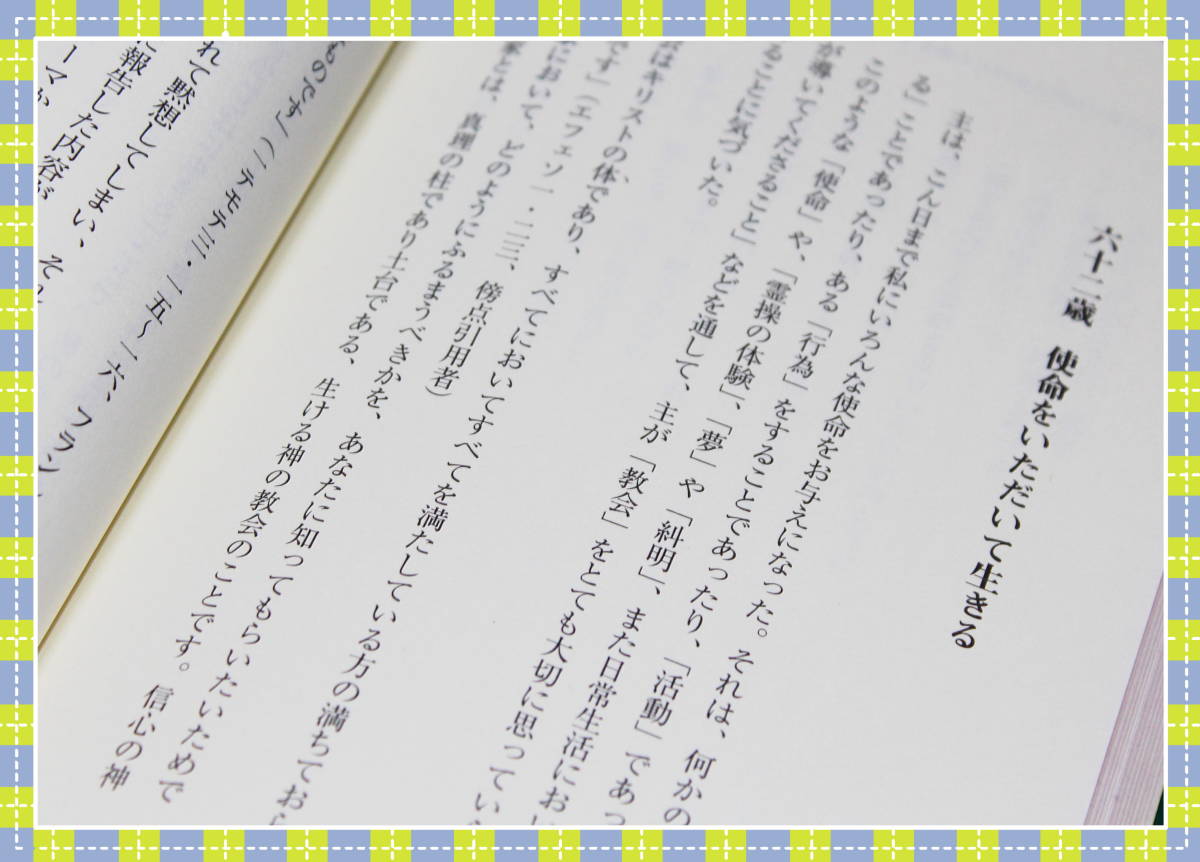 六十二歳　使命をいただいて生きる
主は、こん日まで私にいろんな使命をお与えになった。それは、何かの
る」ことであったり、ある「行為」をすることであったり、「活動」であっ
このような「使命」や、「霊操の体験」、「夢」や「糾明」、また日常生活におい
が導いてくださること」などを通して、主が「教会」をとても大切に思ってい
ることに気づいた。
はキリストの体であり、すべてにおいてすべてを満たしている方の満ちてお
です」（エフェソ一・二三、傍点引用者）
において、どのようにふるまうべきかを、あなたに知ってもらいたいためで
家とは、真理の柱であり土台である、生ける神の教会のことです。信心の神
ものです」（一テモテ三・一五～一六、フラン
れて黙想してしまい、そ
に報告した内容が
ーマか